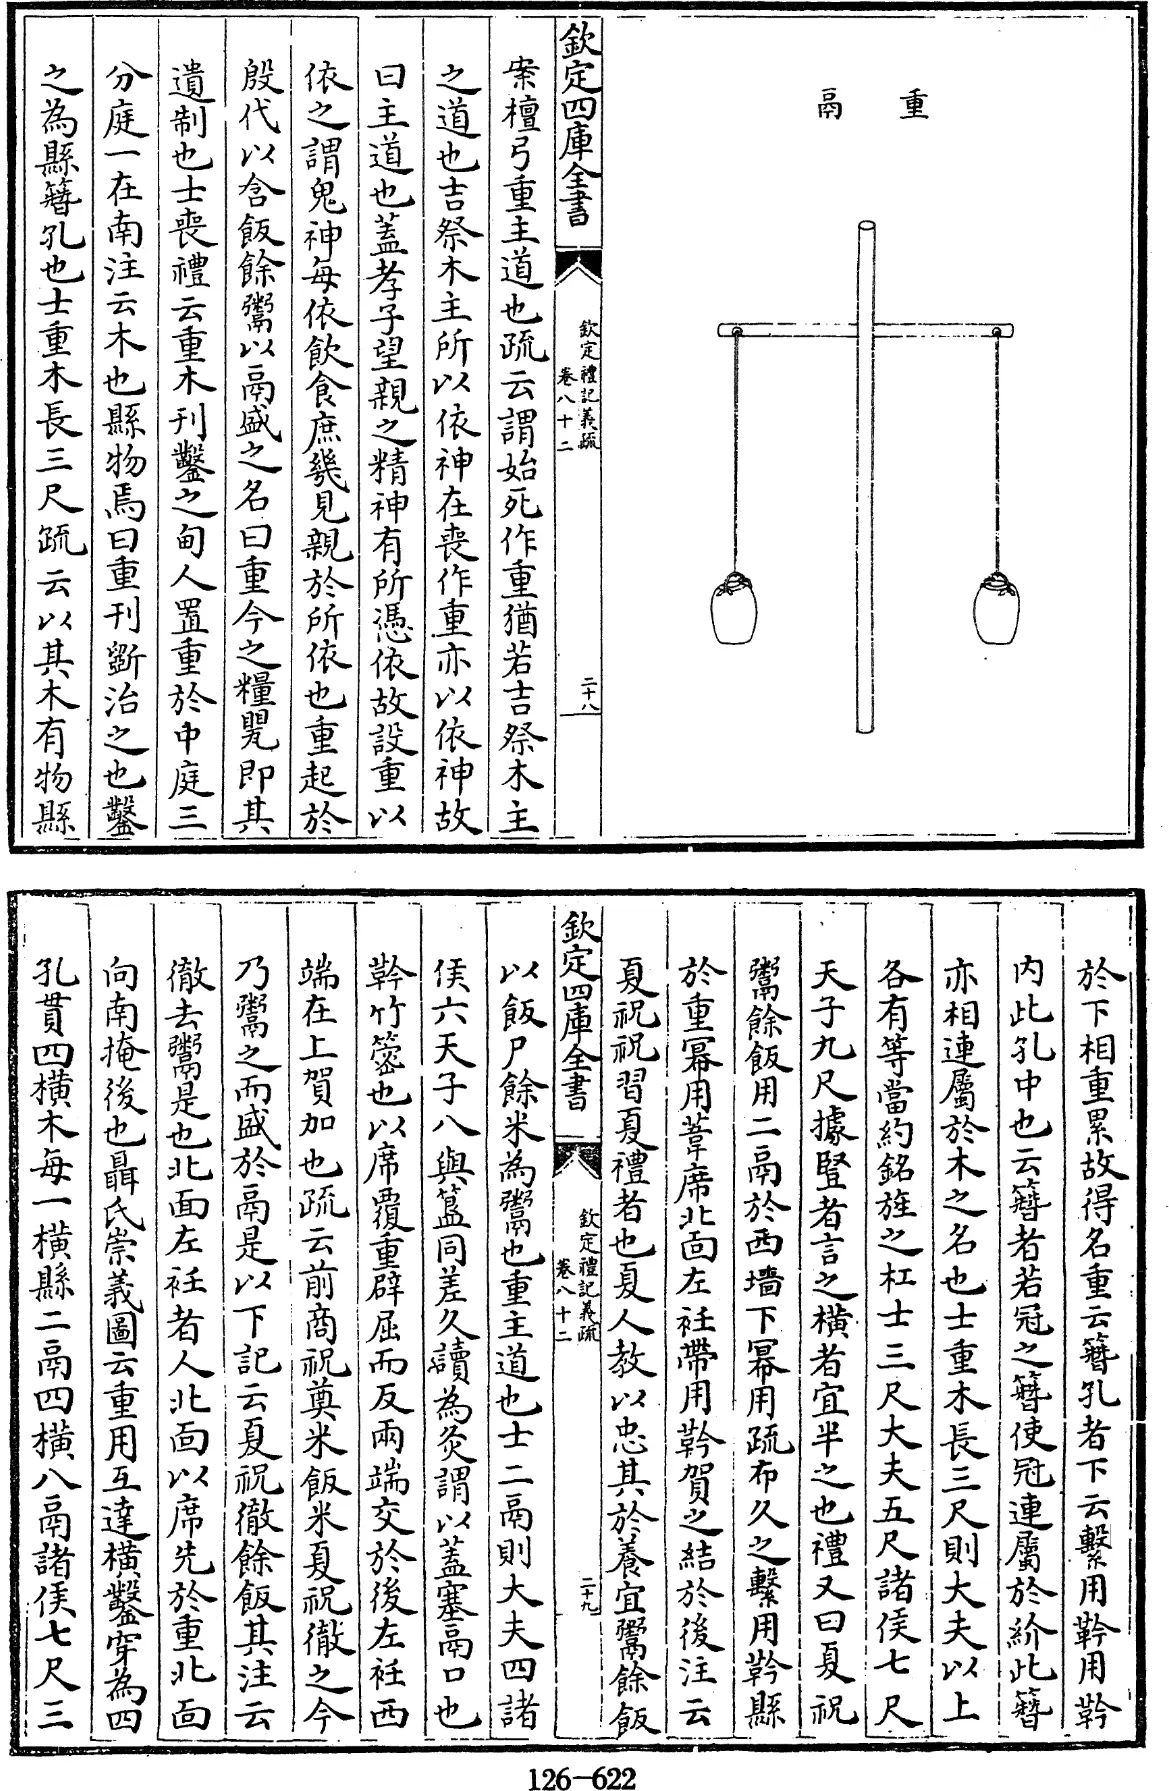 重
鬲
欽定四庫全書
欽定禮記義疏
卷八十二
二十八
案檀弓重主道也疏云謂始死作重猶若吉祭木主
之道也吉祭木主所以依神在喪作重亦以依神故
曰主道也蓋孝子望親之精神有所憑依故設重以
依之謂鬼神每依飲食庶幾見親於所依也重起於
殷代以含飯餘鬻以鬲盛之名曰重今之糧甖即其
遺制也士喪禮云重木刊鑿之甸人置重於中庭三
分庭一在南注云木也縣物焉曰重刊斵治之也鑿
之為縣簪孔也士重木長三尺疏云以其木有物縣
於下相重累故得名重云簪孔者下云繫用靲用靲
內此孔中也云簪者若冠之簪使冠連屬於紒此簪
亦相連屬於木之名也士重木長三尺則大夫以上
各有等當約銘旌之杠士三尺大夫五尺諸侯七尺
天子九尺據豎者言之橫者宜半之也禮又曰夏祝
鬻餘飯用二鬲於西墻下冪用疏布久之繫用靲縣
於重冪用葦席北面左衽帶用靲賀之結於後注云
夏祝祝習夏禮者也夏人教以忠其於養宜鬻餘飯
欽定四庫全書
欽定禮記義疏
卷八十二
二十九
以飯尸餘米為鬻也重主道也士二鬲則大夫四諸
侯六天子八與簋同差久讀為灸謂以蓋塞鬲口也
靲竹䈼也以席覆重辟屈而反兩端交於後左衽西
端在上賀加也疏云前商祝奠米飯米夏祝徹之今
乃鬻之而盛於鬲是以下記云夏祝徹餘飯其注云
徹去鬻是也北面左衽者人北面以席先於重北面
向南掩後也聶氏崇義圖云重用互達橫鑿穿為四
孔貫四橫木每一橫縣二鬲四橫八鬲諸侯七尺三
126—622